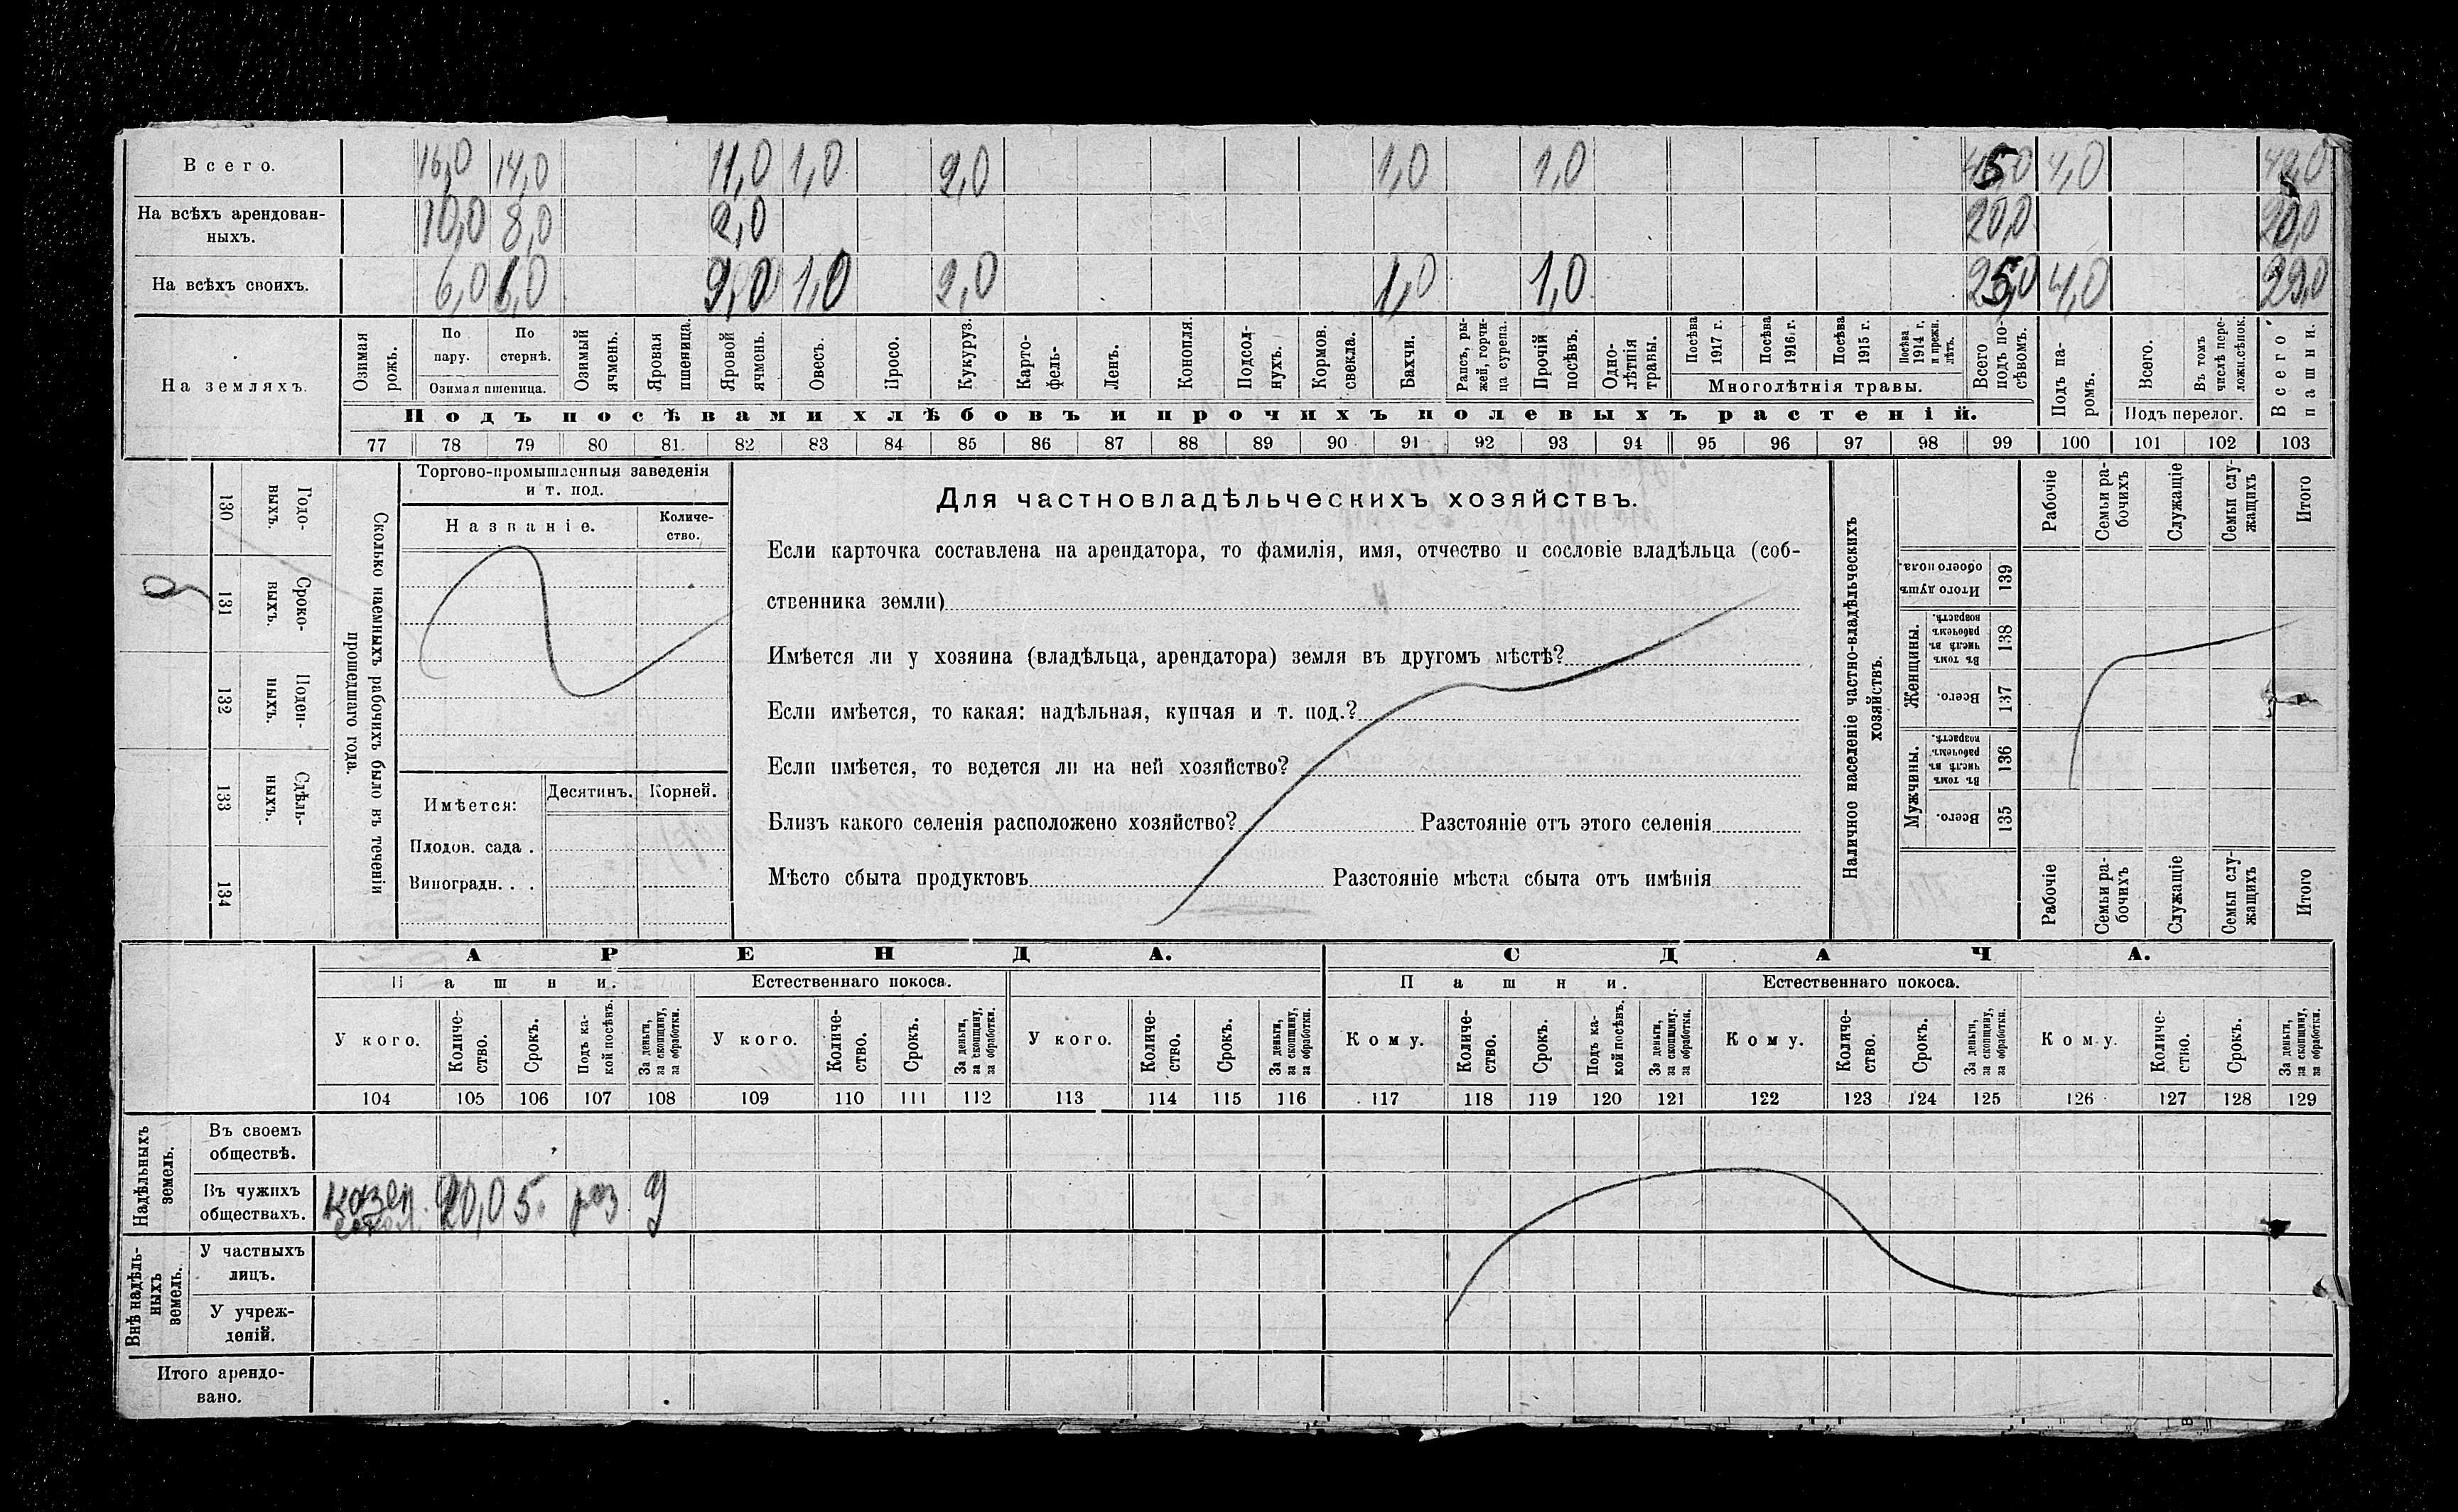 Всего. 16,0 14,0 11,0 1,0 2,0 1,0 1,0 45,0 4,0 49,0
На всѣхъ арендован-
ныхъ. 10,0 8,0 2,0 20,0 20,0
На всѣхъ своихъ. 6,0 6,0 9,0 1,0 2,0 1,0 1,0 25,0 4,0 29,0
На земляхъ.
Озимая рожь.
По пару.
По стернѣ.
Озимая пшеница.
Озимый ячмень.
Яровая пшеница.
Яровой ячмень.
Овесъ.
Просо.
Кукуруз.
Карто-
фель-
Ленъ.
Конопля.
Подсол-
нухъ.
Кормов.
свекла.
Бахчи.
Рапсъ, ры-
жей, горчи-
ца сурепа.
Прочій
посѣвъ.
Одно-
лѣтнія
травы.
Посѣва
1917 г.
Посѣва
1916 г.
Посѣва
1915 г.
Посѣва
1914 г.
и прежн.
лѣтъ.
Многолѣтнія травы.
Всего
подъ по-
сѣвомъ.
Подъ па-
ромъ.
Всего.
Въ томъ
числѣ пере-
ложн.сѣнок.
Подъ перелог.
Всего
пашни.
Подъ посѣвами хлѣбовъ и прочихъ полевыхъ растеній.
77 78 79 80 81 82 83 84 85 86 87 88 89 90 91 92 93 94 95 96 97 98 99 100 101 102 103
Сколько наемныхъ рабочихъ было въ теченіи
прошедшаго года.
Годо-
выхъ.
130
Сроко-
выхъ.
131
Поден-
ныхъ.
132
Сдѣль-
ныхъ.
133
134
Торгово-промышленныя заведенія
и т. под.
Названіе.
Количе-
ство.
Имѣется:
Десятинъ. Корней.
Плодов. сада .
Виноградн. . .
Для частновладѣльческихъ хозяйствъ.
Если карточка составлена на арендатора, то фамилія, имя, отчество и сословіе владѣльца (соб-
ственника земли)
Имѣется ли у хозяина (владѣльца, арендатора) земля въ другомъ мѣстѣ?
Если имѣется, то какая: надѣльная, купчая и т. под.?
Если имѣется, то ведется ли на ней хозяйство?
Близъ какого селенія расположено хозяйство? Разстояніе отъ этого селенія
Мѣсто сбыта продуктовъ Разстояніе мѣста сбыта отъ имѣнія
Наличное населеніе частно-владѣльческихъ
хозяйствъ.
Рабочіе
Семьи ра-
бочихъ
Служащіе
Семьи слу-
жащихъ
Итого
Итого душъ
обоего пола.
139
Женщины.
Въ томъ
числѣ въ
рабочемъ
возрастѣ.
138
Всего.
137
Мужчины.
Въ томъ
числѣ въ
рабочемъ
возрастѣ.
136
Всего.
135
Рабочіе
Семьи ра-
бочихъ
Служащіе
Семьи слу-
жащихъ
Итого
АРЕНДА. СДАЧА.
Пашни. Естественнаго покоса. Пашни. Естественнаго покоса.
У кого.
Количе-
ство.
Срокъ.
Подъ ка-
кой посѣвъ.
За деньги,
за скопщину,
за обработки.
У кого.
Количе-
ство.
Срокъ.
За деньги,
за скопщину,
за обработки.
У кого.
Количе-
ство.
Срокъ.
За деньги,
за скопщину,
за обработки.
Кому.
Количе-
ство.
Срокъ.
Подъ ка-
кой посѣвъ.
За деньги,
за скопщину,
за обработки.
Кому.
Количе-
ство.
Срокъ.
За деньги,
за скопщину,
за обработки.
Кому.
Количе-
ство.
Срокъ.
За деньги,
за скопщину,
за обработки.
104 105 106 107 108 109 110 111 112 113 114 115 116 117 118 119 120 121 122 123 124 125 126 127 128 129
Надѣльныхъ
земель.
Въ своемъ
обществѣ.
Въ чужихъ
обществахъ. казен. 20,0 5 раз д
Внѣ надѣль-
ныхъ
земель.
У частныхъ
лицъ.
У учреж-
деній.
Итого арендо-
вано.